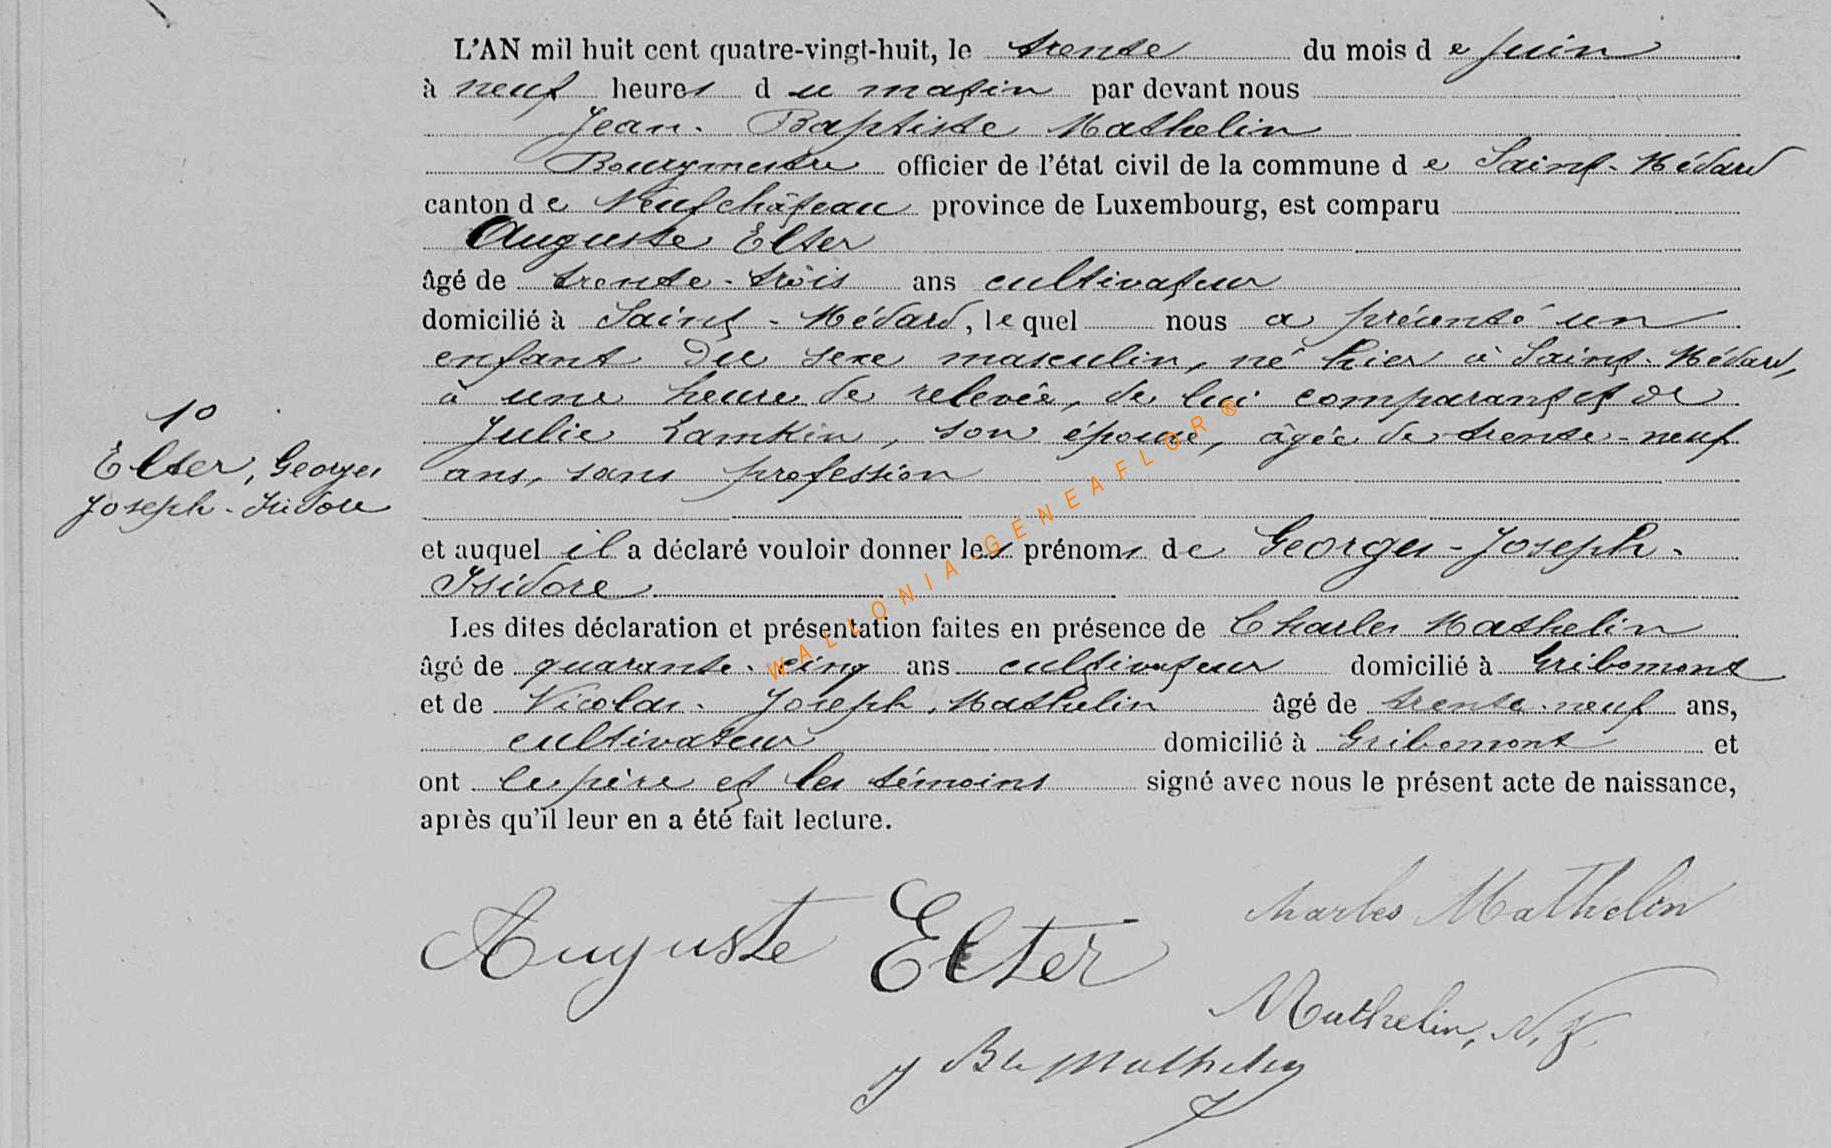 L'AN mil huit cent quatre-vingt-huit, le trente du mois de juin
à neuf heures du matin par devant nous
Jean-Baptiste Mathelin
Bourgmestre officier de l'état civil de la commune de Saint-Médard
canton de Neufchâteau province de Luxembourg, est comparu
Auguste Elter
âgé de trente-trois ans cultivateur
domicilié à Saint-Médard, lequel nous a présenté un
enfant du sexe masculin, né hier à Saint-Médard,
à une heure de relevée, de lui comparant et de
Julie Lamkin, son épouse, âgée de trente-neuf
ans, sans profession
10
Elter, Georges
Joseph-Isidore
et auquel il a déclaré vouloir donner les prénoms de Georges-Joseph-
Isidore
Les dites déclaration et présentation faites en présence de Charles Mathelin
âgé de quarante-cinq ans cultivateur domicilié à Gribomont
et de Nicolas-Joseph Mathelin âgé de trente-neuf ans,
cultivateur domicilié à Gribomont et
ont le père et les témoins signé avec nous le présent acte de naissance,
après qu'il leur en a été fait lecture.
Auguste Elter
Charles Mathelin
Mathelin, N. J.
J Bte Mathelin
WALLONIA-GENEAFLOR®